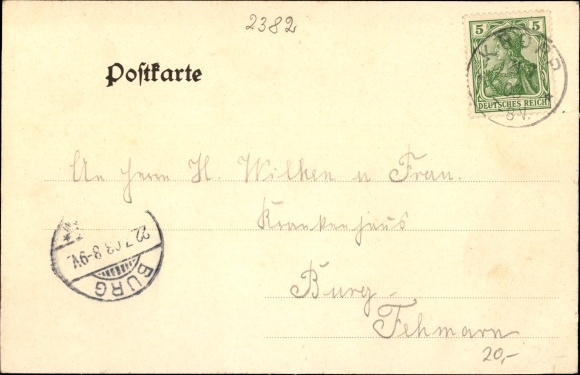 2382
5 5
DEUTSCHES REICH
8-V.
Postkarte
An Herrn H. Wilken u Frau.
Krankenhaus
Burg-
Fehmarn
20,-
22.7.03.8-9V.
BURG